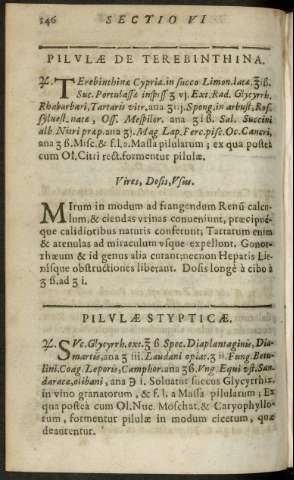 146 SECTIO VI
PILVLÆ DE TEREBINTHINA.
℞. TErebinthinæ Cypriæ. in succo Limon. lotæ. ʒiß.
Suc. Portulassæ inspiss ʒ vj. Ext. Rad. Glycyrrh.
Rhabarbari, Tartaris vitr, ana ʒ iij. Spong. in arbust, Ros.
sylvest. natæ, Oss. Mespilor. ana ʒ i ß. Sal. Succini
alb. Nitri præp. ana ʒj. Mag Lap. Perc. pisc. Oc. Cancri,
ana ʒ ß. Misc. & f. l. a. Massa pilularum; ex qua posteà
cum Ol. Citri rect. formentur pilulæ.
Vires, Dosis, Vsus.
MIrum in modum ad frangendum Renũ calcu-
lum, & ciendas vrinas conueniunt, præcipuè-
que calidioribus naturis conferunt; Tartarum enim
& arenulas ad miraculum vsque expellunt. Gonor-
rhæum & id genus alia curant; necnon Hepatis Lie-
nisque obstructiones liberant. Dosis longè à cibo à
ʒ ß. ad ʒ i.
PILVLÆ STYPTICÆ.
℞. SVc. Glycyrrh. ext. ʒ ß Spec. Diaplantaginis, Dia-
martis, ana ʒ iii. Laudani opiat. ʒ ii. Fung. Betu-
lini. Coag. Leporis, Camphor. ana ʒß. Vng. Equi vst. San-
daraca, olibani, ana ℈ i. Soluatur succus Glycyrrhizæ
in vino granatorum, & f. l. a Massa pilularum; Ex
qua posteà cum Ol. Nuc. Moschat. & Caryophyllo-
rum, formentur pilulæ in modum cicerum, quæ
deaurentur.